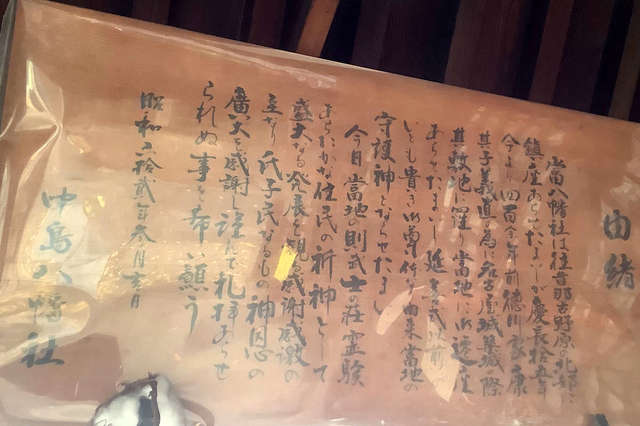 由緒
當八幡社は往昔那古野原の北部に
鎮座あらせたまいしが慶長拾五年
今より四百余年前徳川家康
其子義直の為に名古屋城築城の際
其敷地に 當地に御遷座
あらせたまいし延喜式
いとも貴き御尊 由来當地の
守護神とならせたまい
今日當地 則武士の荘霊験
あらたかな住民の祈神として
盛大なる発展を観る感謝感激の
立なり 氏子民なるもの神恩の
廣大を感謝し謹んで礼拝あらせ
られぬ事を希い願う
昭和五拾弐年
中島八幡社